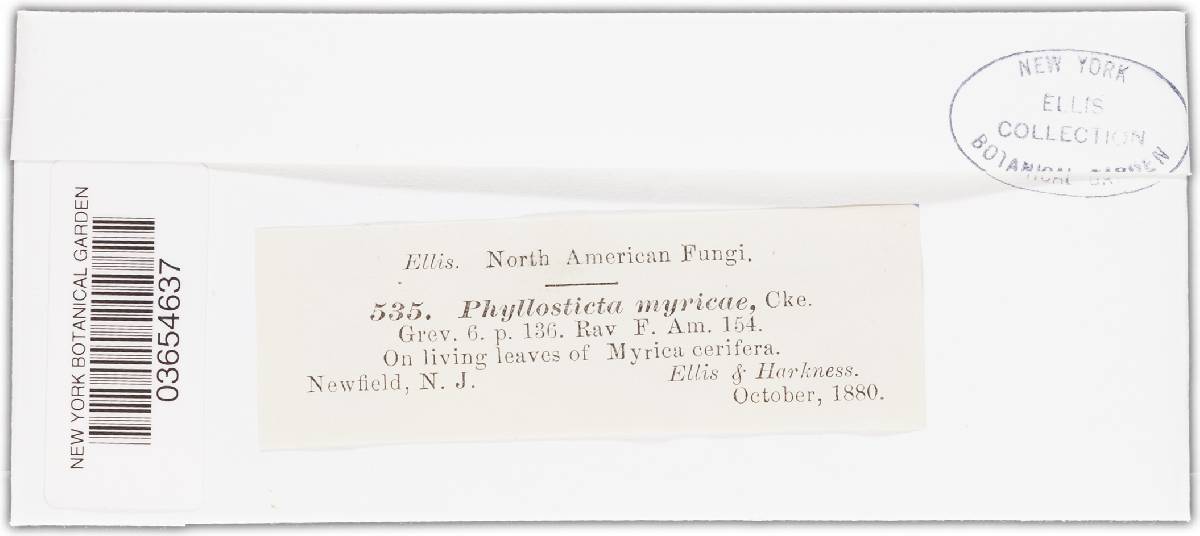 NEW YORK
ELLIS
COLLECTION
BOTANICAL GARDEN
NEW YORK BOTANICAL GARDEN
03654637
Ellis. North American Fungi.
535. Phyllosticta myricae, Cke.
Grev. 6. p. 136. Rav F. Am. 154.
On living leaves of Myrica cerifera.
Newfield, N. J. Ellis & Harkness.
October, 1880.